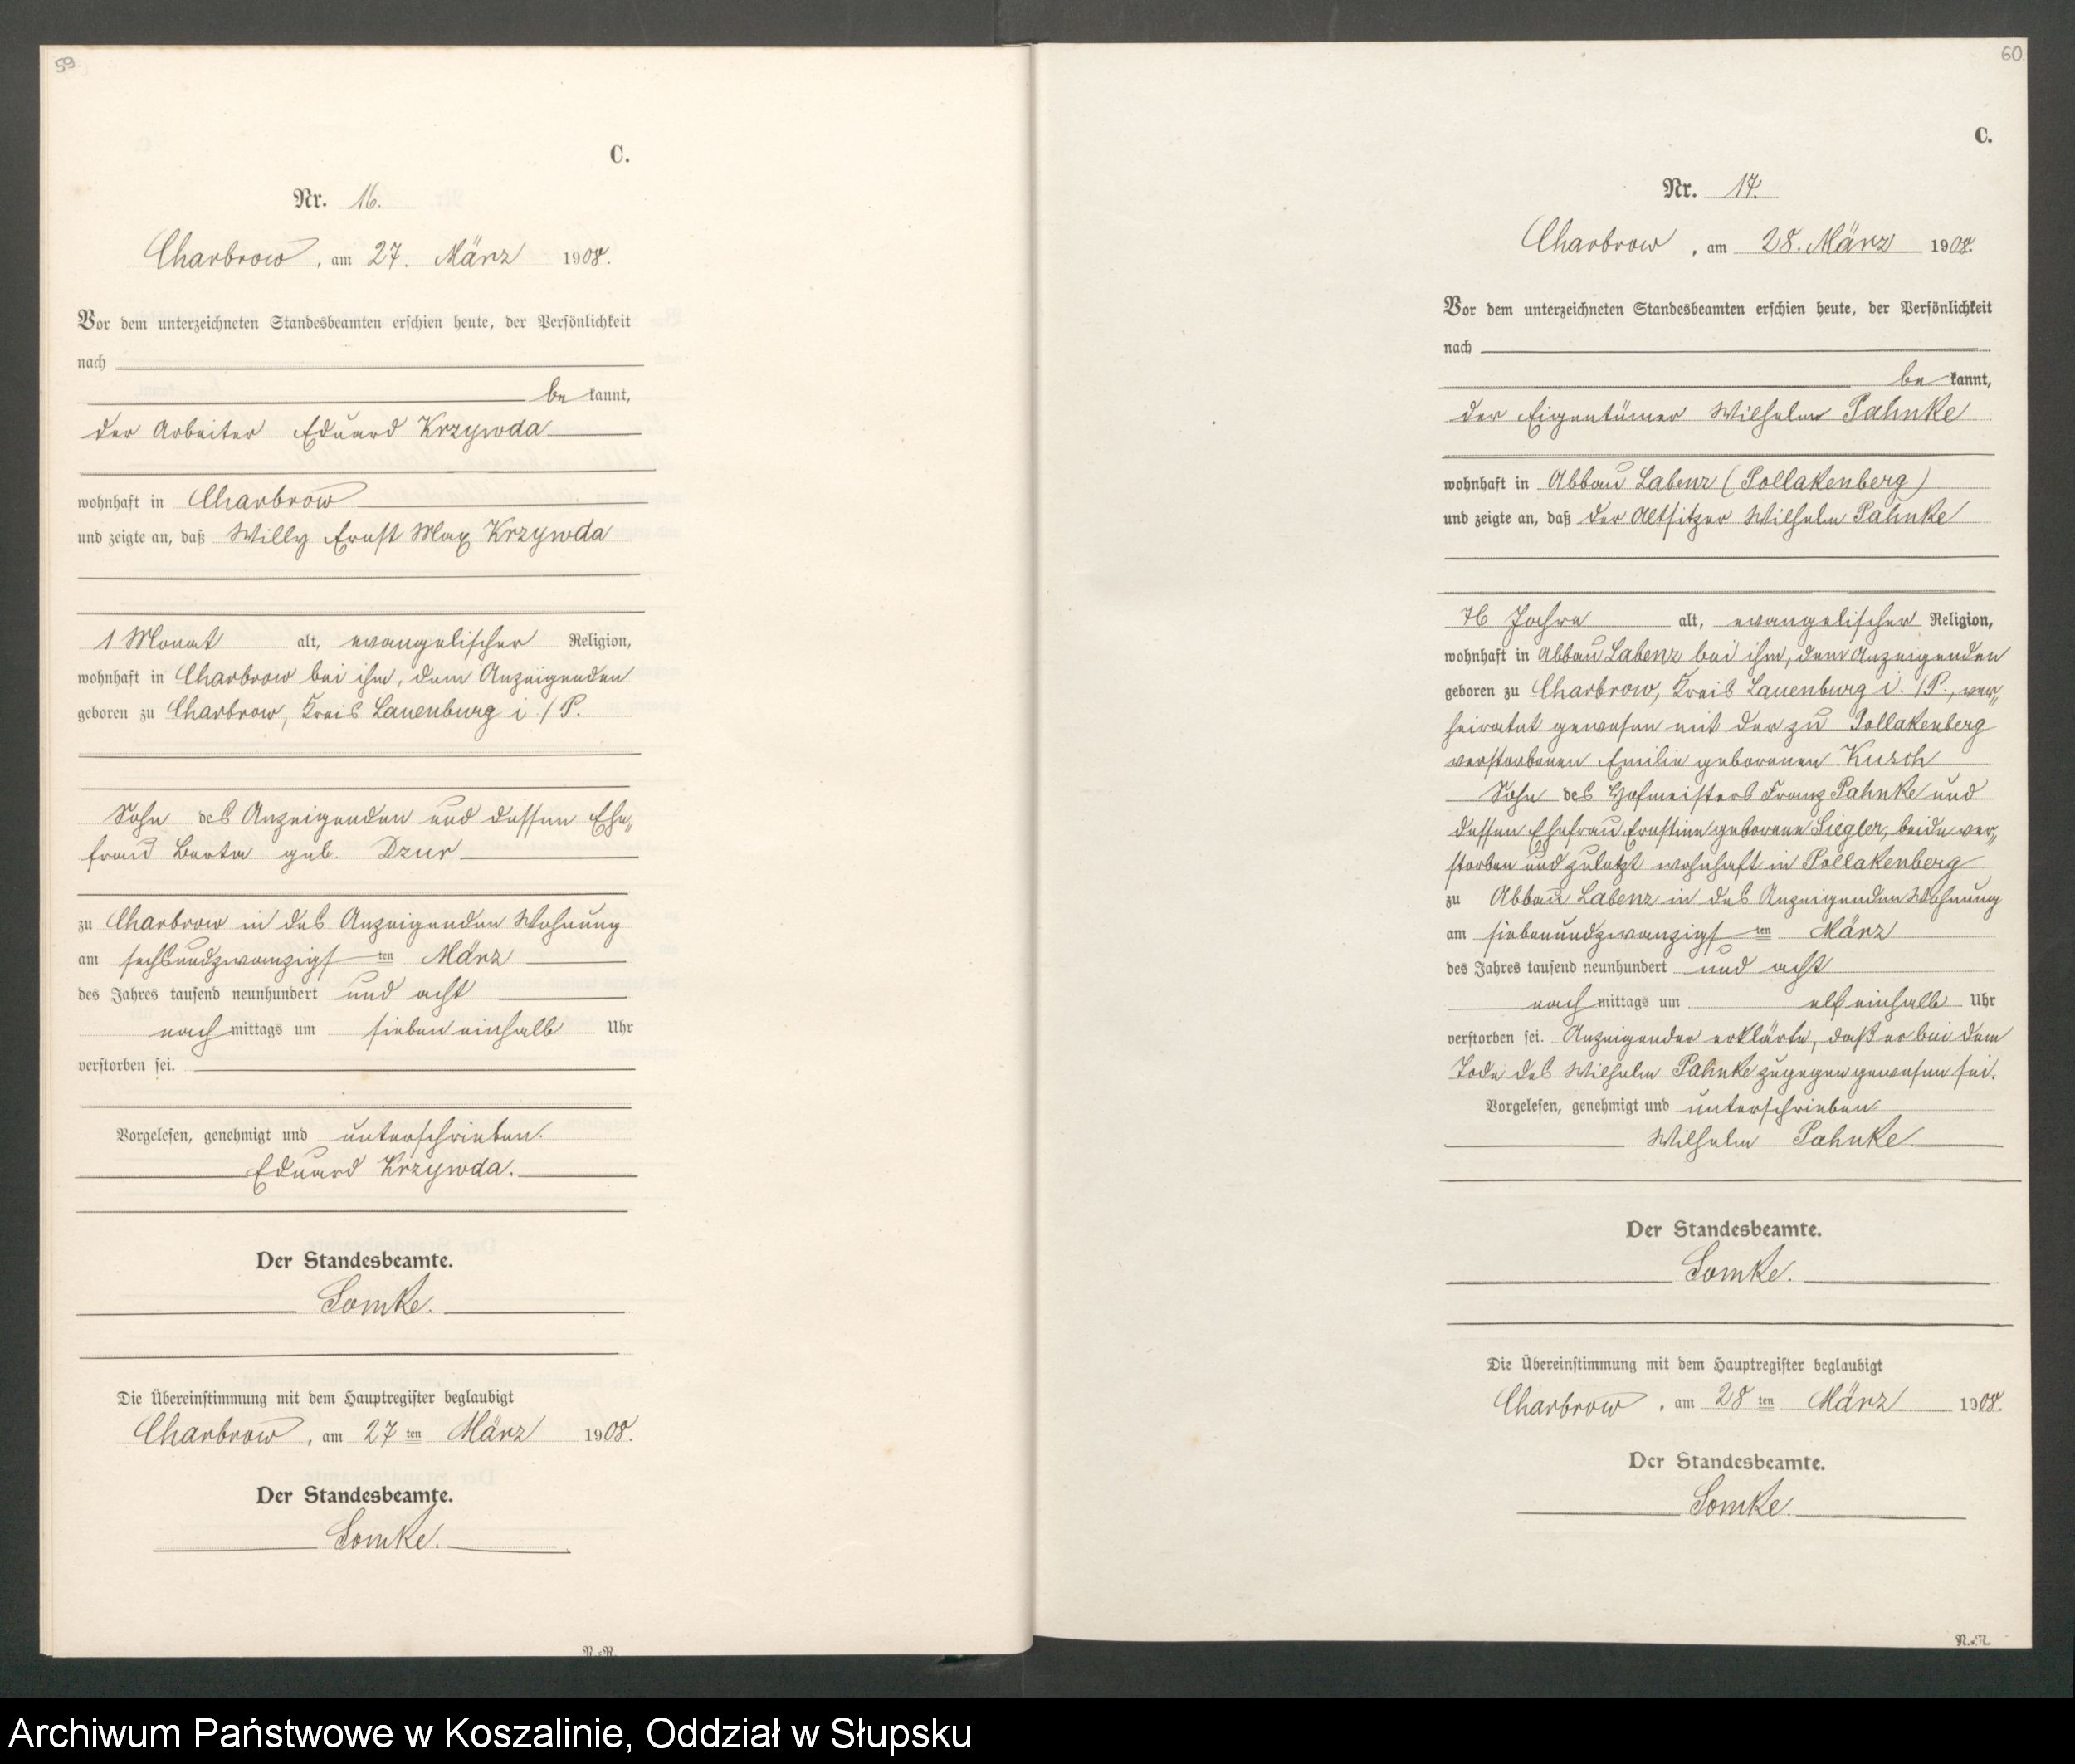 59
C.
Nr. 16.
Charbrow, am 27. März 1908.
Vor dem unterzeichneten Standesbeamten erschien heute, der Persönlichkeit
nach
be kannt,
der Arbeiter Eduard Krzywda
wohnhaft in Charbrow
und zeigte an, daß Willy Ernst Max Krzywda
1 Monat alt, evangelischer Religion,
wohnhaft in Charbrow bei ihm, dem Anzeigenden
geboren zu Charbrow, Kreis Lauenburg i./P.
Sohn des Anzeigenden und dessen Ehe„
frau Berta geb. Dzur
zu Charbrow in des Anzeigenden Wohnung
am sechsundzwanzigs ten März
des Jahres tausend neunhundert und acht
nach mittags um sieben einhalb Uhr
verstorben sei.
Vorgelesen, genehmigt und unterschrieben.
Eduard Krzywda.
Der Standesbeamte.
Somke.
Die Übereinstimmung mit dem Hauptregister beglaubigt
Charbrow, am 27 ten März 1908.
Der Standesbeamte.
Somke.
60
C.
Nr. 17.
Charbrow, am 28. März 1908.
Vor dem unterzeichneten Standesbeamten erschien heute, der Persönlichkeit
nach
be kannt,
der Eigentümer Wilhelm Pahnke
wohnhaft in Abbau Labenz (Pollakenberg)
und zeigte an, daß der Altsitzer Wilhelm Pahnke
76 Jahre alt, evangelischer Religion,
wohnhaft in Abbau Labenz bei ihm, dem Anzeigenden
geboren zu Charbrow, Kreis Lauenburg i./P., ver„
heiratet gewesen mit der zu Pollakenberg
verstorbenen Emilie geborenen Kusch
Sohn des Hofmeisters Franz Pahnke und
dessen Ehefrau Ernstine geborene Siegler, beide ver„
storben und zuletzt wohnhaft in Pollakenberg
zu Abbau Labenz in des Anzeigenden Wohnung
am siebenundzwanzigs ten März
des Jahres tausend neunhundert und acht
nach mittags um elf einhalb Uhr
verstorben sei. Anzeigender erklärte, daß er bei dem
Tode des Wilhelm Pahnke zugegen gewesen sei.
Vorgelesen, genehmigt und unterschrieben.
Wilhelm Pahnke
Der Standesbeamte.
Somke.
Die Übereinstimmung mit dem Hauptregister beglaubigt
Charbrow, am 28 ten März 1908.
Der Standesbeamte.
Somke.
Archiwum Państwowe w Koszalinie, Oddział w Słupsku